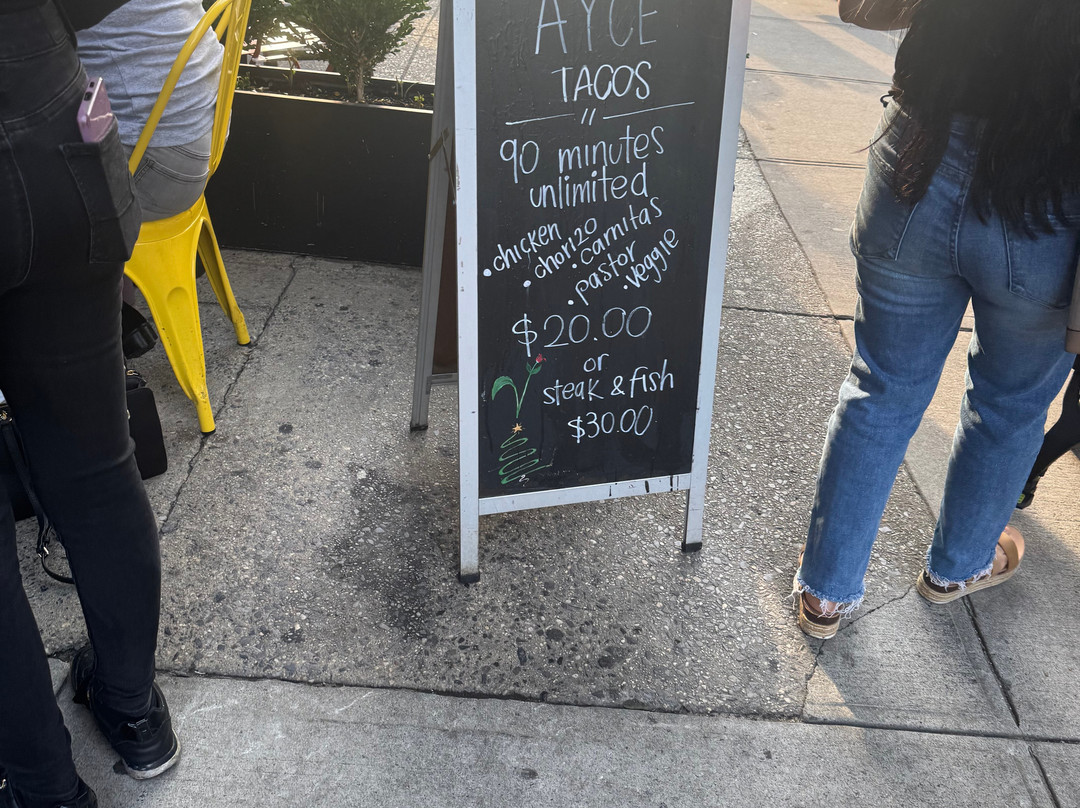 AYCE
TACOS
"
90 minutes
unlimited
• chicken
• chorizo
• carnitas
• pastor
• veggie
$20.00
or
steak & fish
$30.00